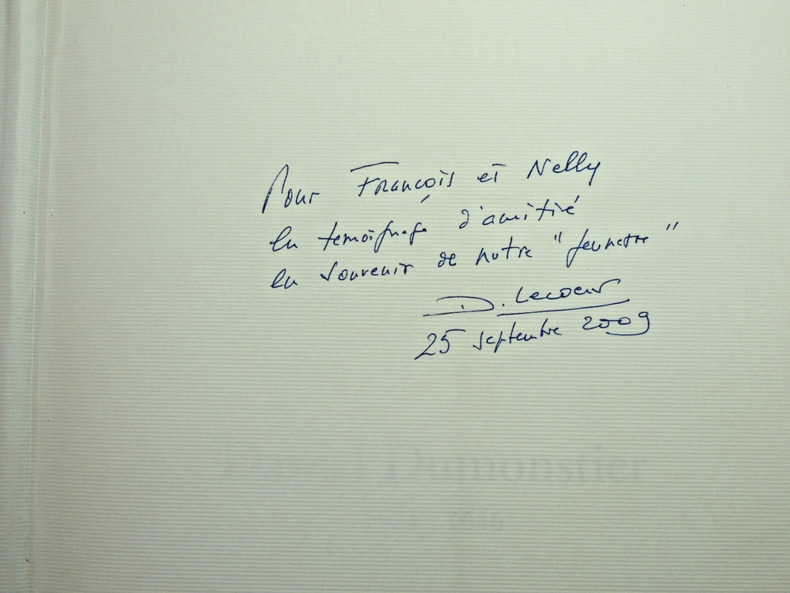 Pour François et Nelly
en témoignage d'amitié
en souvenir de notre "jeunesse"
D. Lecoeur
25 septembre 2009
Daniel Dumonstier
1574-1646